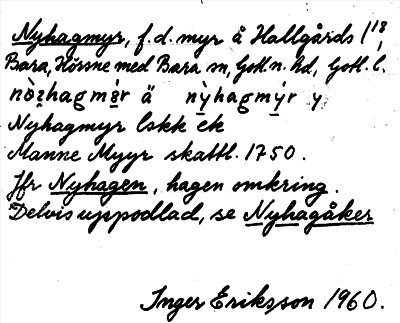 Nyhagmyr, f.d. myr å Hallgårds 1¹⁸,
Bara, Hörsne med Bara sn, Gotl. n. hd, Gotl. l.
nỳhagmýr y
Nyhagmyr lskk ek
Manne Myyr skattl. 1750.
Jfr Nyhagen, hagen omkring.
Delvis uppodlad, se Nyhagåker
Inger Eriksson 1960.